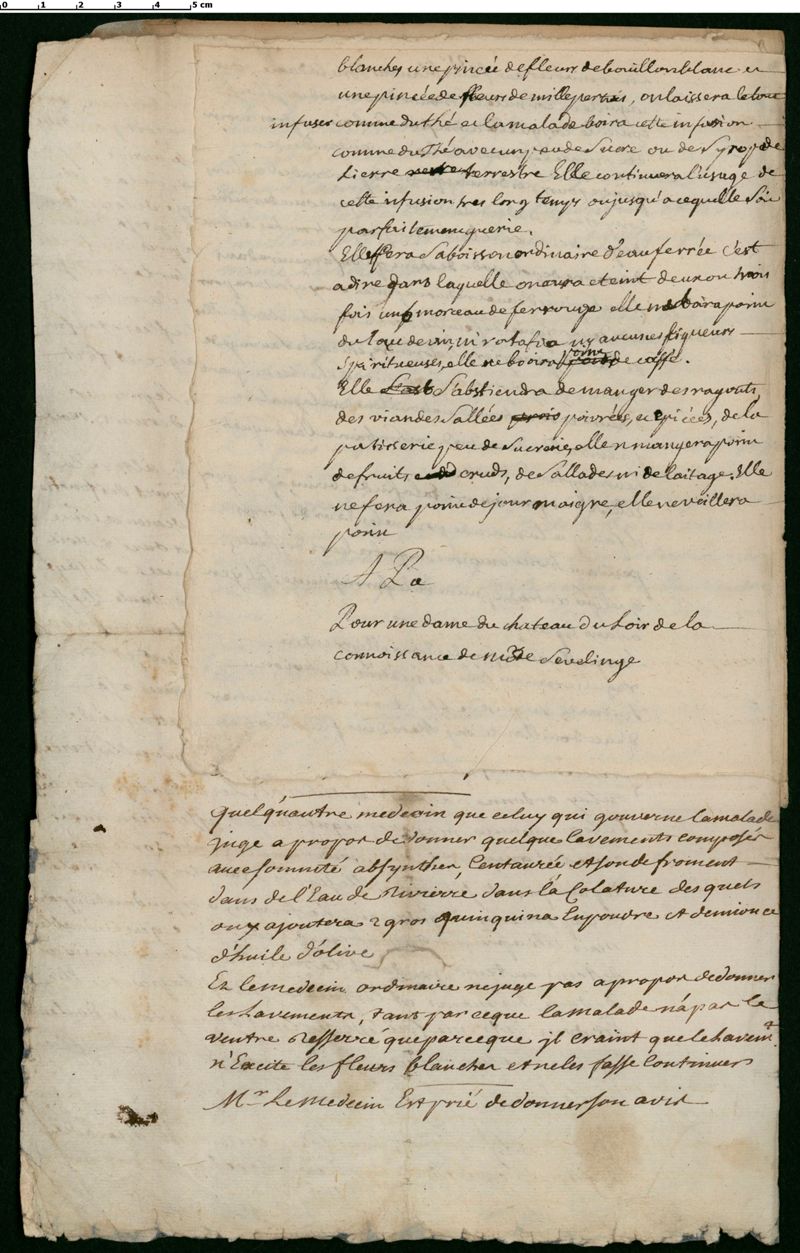 0 1 2 3 4 5 cm
blanches une pincée de fleurs de bouillon blanc et
une pincée de fleurs de millepertuis, on laissera le tout
infuser comme du thé et la malade boira cette infusion
comme du Thé avec un peu de Sucre ou de Syrop de
Lierre terrestre Elle continuera l'usage de
cette infusion tres long temps ou jusqu'a ce quelle Soit
parfaitement guerie.
Elle fera Sa boisson ordinaire d'eau ferrée c'est
a dire dans laquelle on aura eteint deux ou trois
fois un morceau de fer rouge elle ne boira point
du tout de vin ni rotafia ny aucunes liqueurs
Spiritueuses, elle ne boira point de caffé.
Elle S'abstiendra de manger des ragouts,
des viandes Sallées poivrées, et epicées, de la
patisserie peu de Sucrerie, elle n mangera point
de fruits cruds, de Sallades ni de laitage. Elle
ne fera point de jour maigre, elle ne veillera
point
A Pa
Pour une dame du chateau du Loir de la
connoissance de Mde Sevelinge
quelqu'autre medecin que celuy qui gouverne la malade
juge a propos de donner quelque lavements composés
avec somnité absynthes, Centaurée et son de froment
dans de l'Eau de Rivierre dans la Colature des quels
on y ajoutera 2 gros quinquina En poudre et demi once
d'huile d'olive
Et le medecin ordinaire ne juge pas a propos de donner
les Lavements, tant par ceque la malade n'a pas le
ventre Resserré que parceque jl craint que le Lavemt
n'Excite les fleurs blanches et ne les fasse Continuer
Mr Le Medecin Est prié de donner son avis